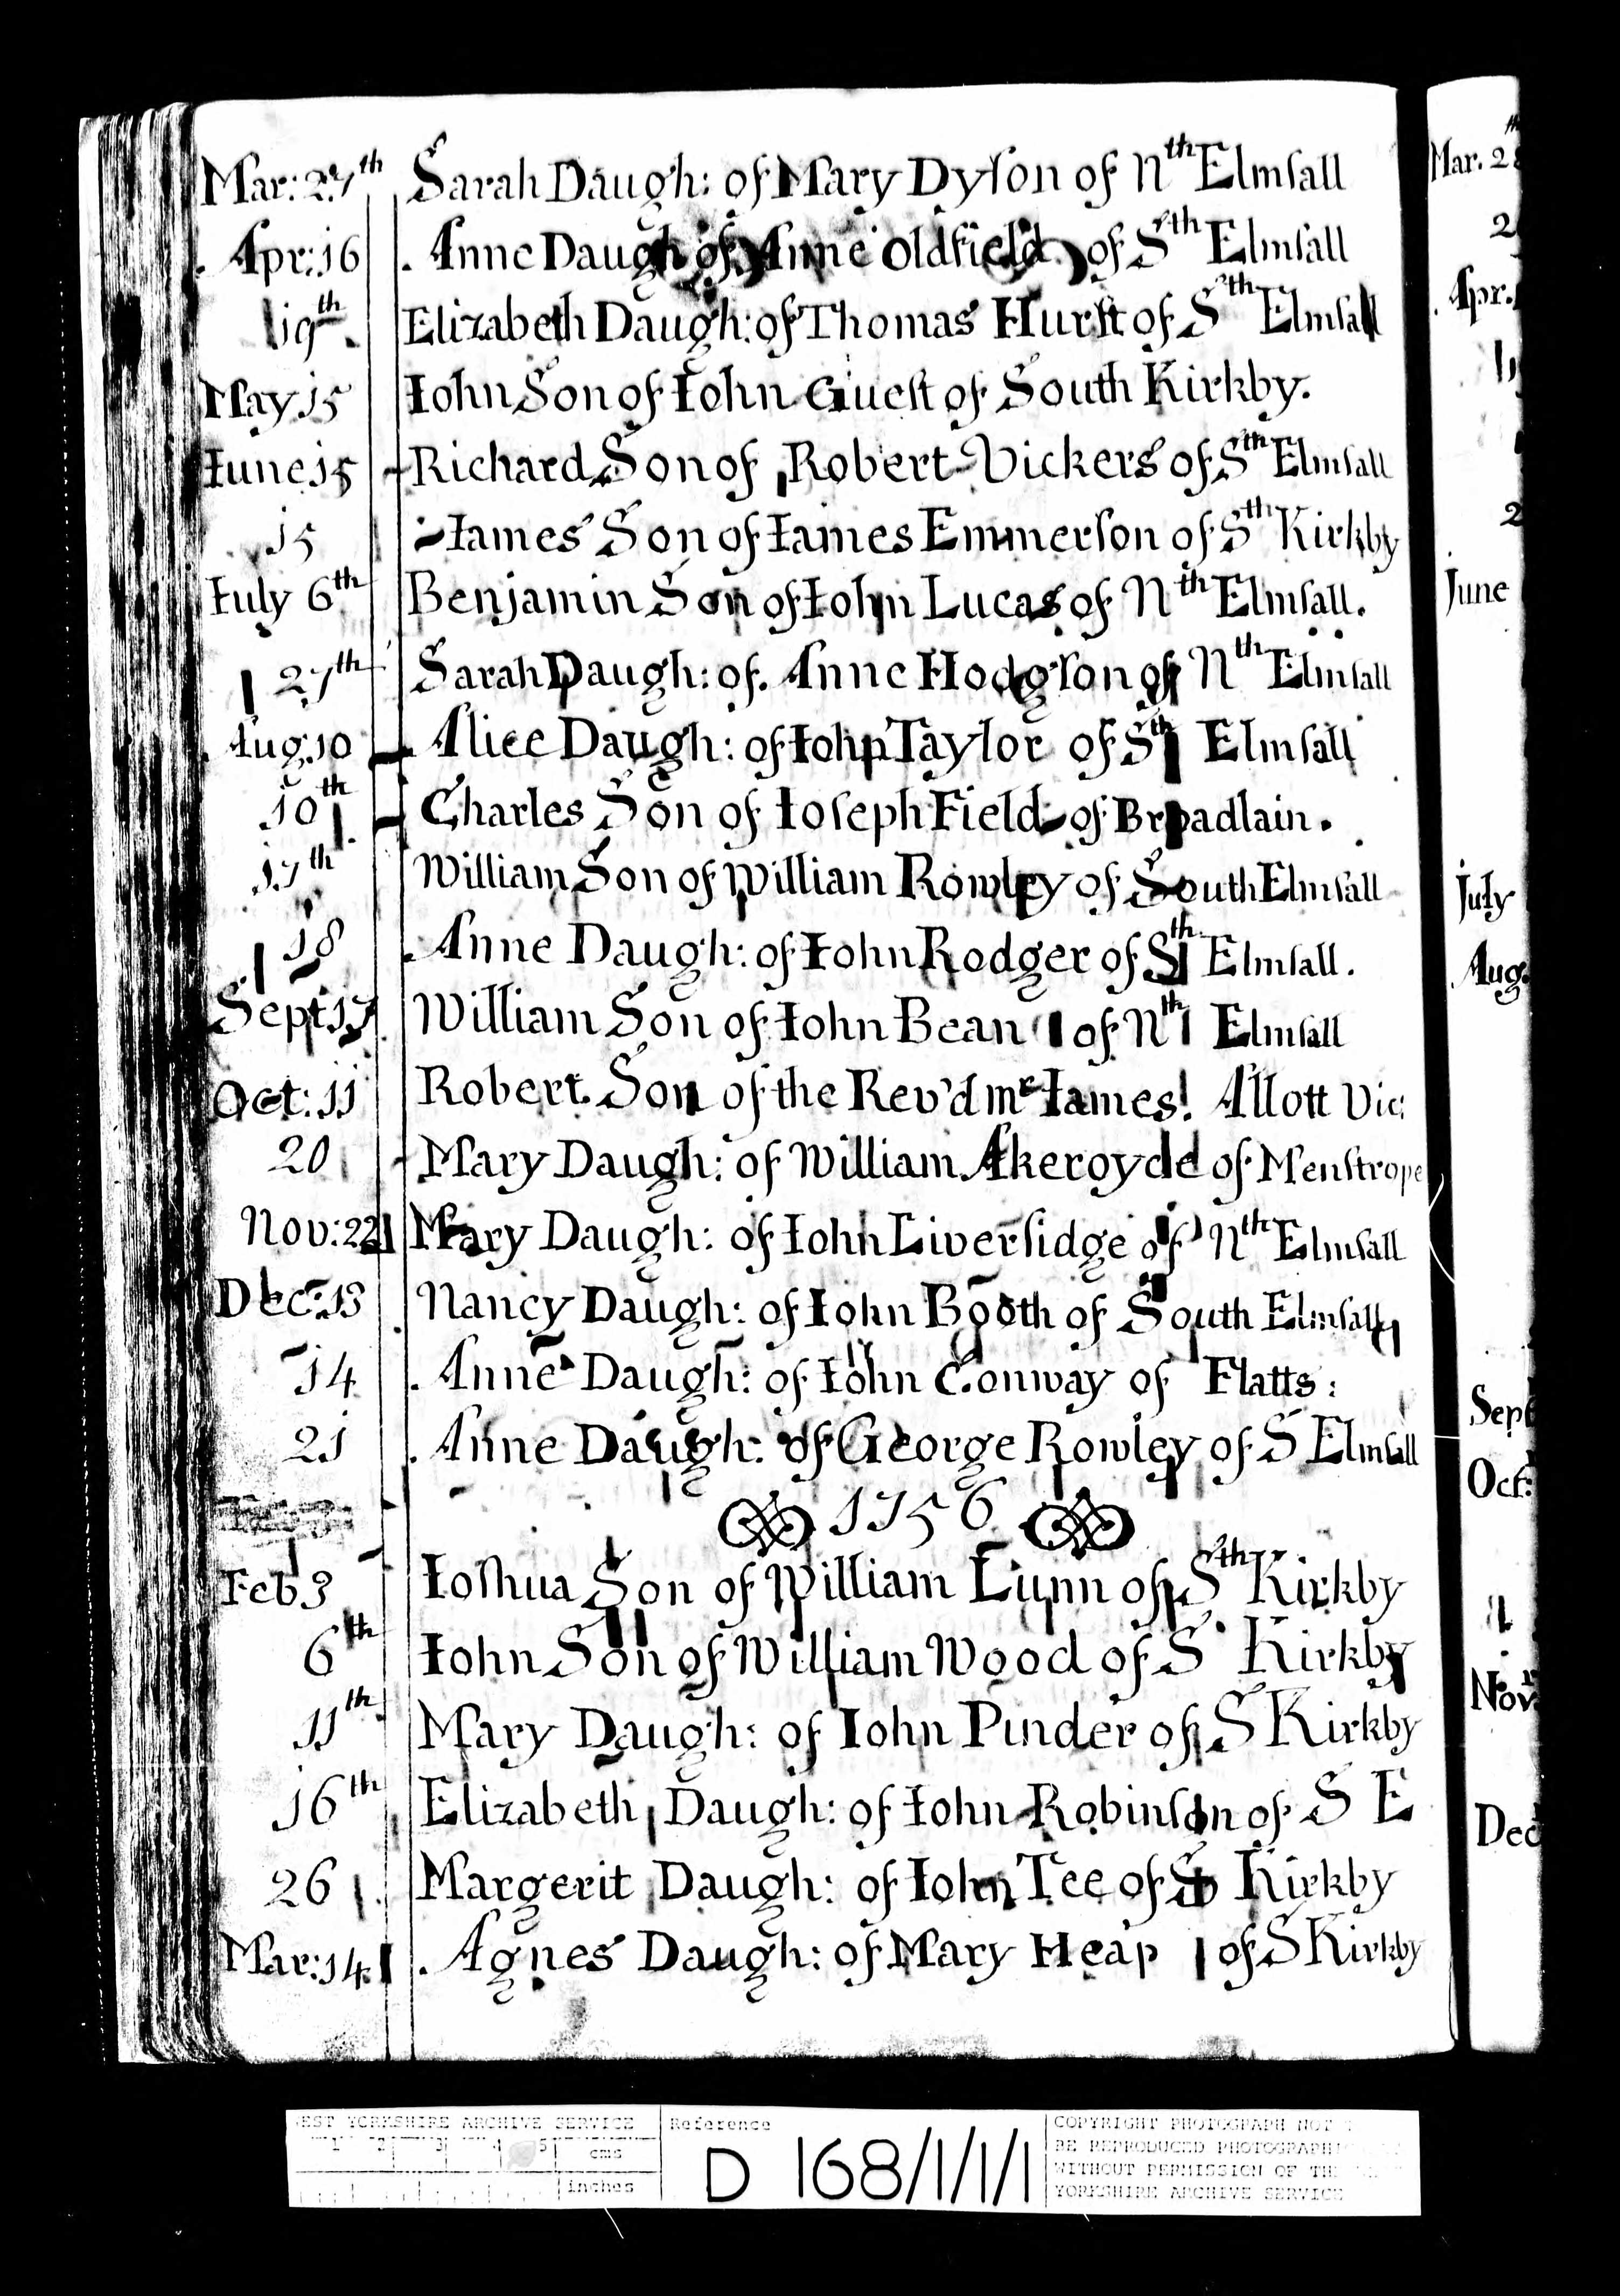 Mar: 27th Sarah Daugh: of Mary Dyſon of Nth Elmſall
Apr: 16 Anne Daugh of Anne Oldfield of Sth Elmſall
19th Elizabeth Daugh: of Thomas Hurſt of Sth Elmſall
May 15 Iohn Son of Iohn Gueſt of South Kirkby.
Iune 15 Richard Son of Robert Vickers of Sth Elmſall
15 Iames Son of Iames Emmerſon of Sth Kirkby
Iuly 6th Benjamin Son of Iohn Lucas of Nth Elmſall.
27th Sarah Daugh: of Anne Hodgſon of Nth Elmſall
Aug: 10 Alice Daugh: of Iohn Taylor of Sth Elmſall
10th Charles Son of Ioſeph Field of Broadlain.
17th William Son of William Rowley of South Elmſall
18 Anne Daugh: of Iohn Rodger of Sth Elmſall.
Sept 17 William Son of Iohn Bean of Nth Elmſall
Oct: 11 Robert Son of the Rev'd Mr Iames Allott Vic:
20 Mary Daugh: of William Akeroyde of Menſtrope
Nov: 22 Mary Daugh: of Iohn Liverſidge of Nth Elmſall
Dec: 13 Nancy Daugh: of Iohn Booth of South Elmſall
14 Anne Daugh: of Iohn Conway of Flatts:
21 Anne Daugh: of George Rowley of S Elmſall
1756
Feb 3 Ioſhua Son of William Lunn of Sth Kirkby
6th Iohn Son of William Wood of S Kirkby
11th Mary Daugh: of Iohn Pinder of S Kirkby
16th Elizabeth Daugh: of Iohn Robinſon of S E
26 Margerit Daugh: of Iohn Tee of S Kirkby
Mar: 14 Agnes Daugh: of Mary Heap of S Kirkby
Mar. 28
Apr.
June
July
Aug.
Sept
Oct:
Nov
Dec
WEST YORKSHIRE ARCHIVE SERVICE
1 2 3 4 5 cms
inches
Reference
D 168/1/1/1
COPYRIGHT PHOTOGRAPH NOT
BE REPRODUCED
WITHOUT PERMISSION OF THE
YORKSHIRE ARCHIVE SERVICE